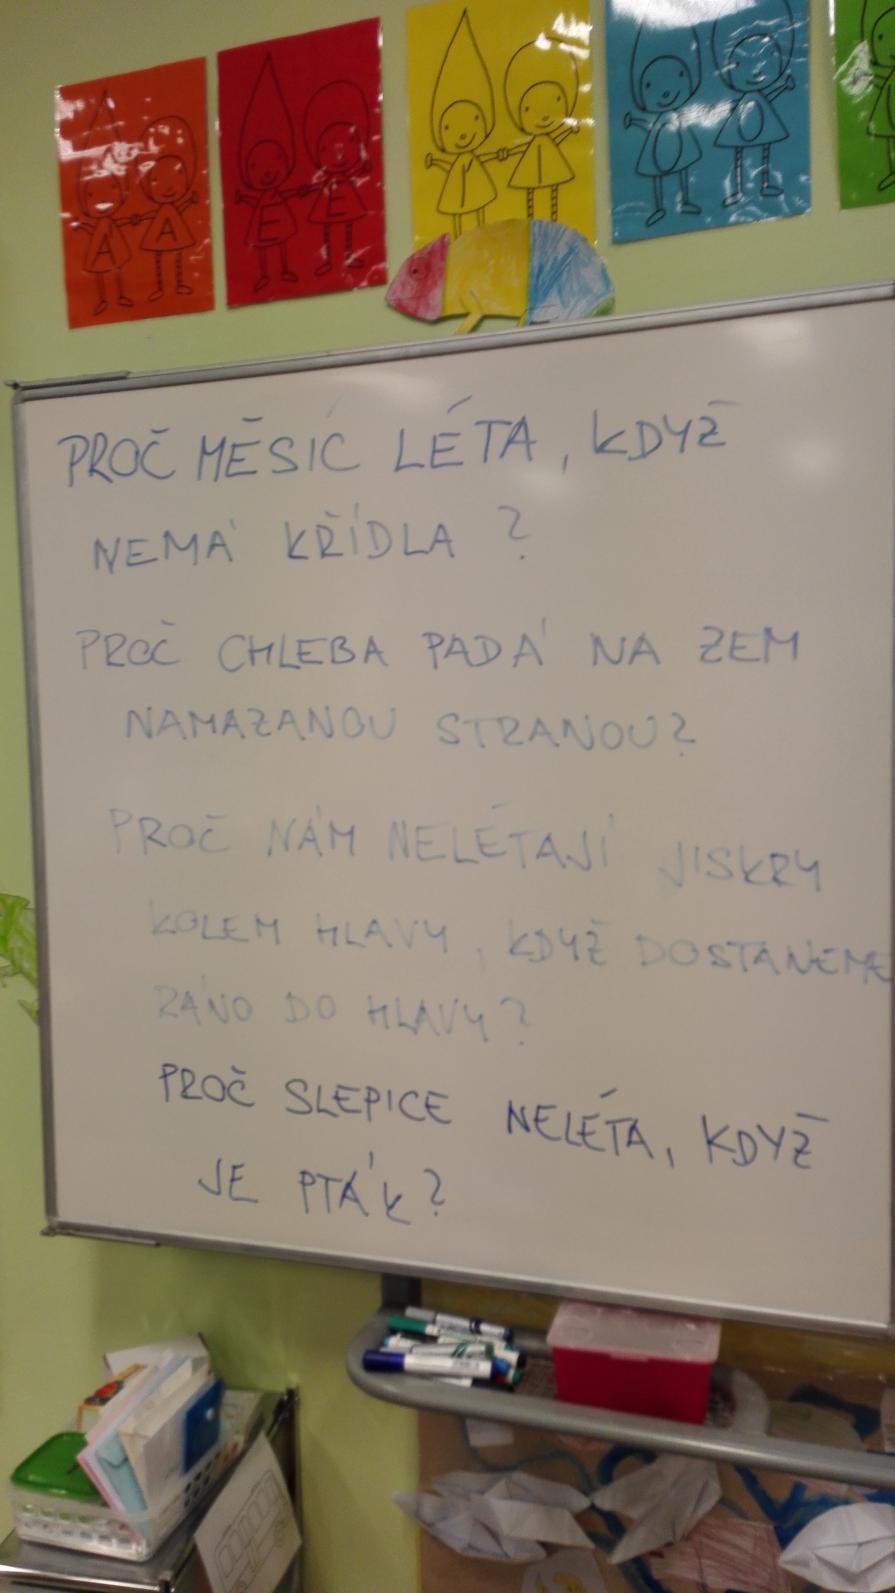 A A
E E
I I
O O
PROČ MĚSÍC LÉTÁ, KDYŽ
NEMÁ KŘÍDLA ?
PROČ CHLEBA PADÁ NA ZEM
NAMAZANOU STRANOU?
PROČ NÁM NELÉTAJÍ JISKRY
KOLEM HLAVY, KDYŽ DOSTANEME
RÁNO DO HLAVY?
PROČ SLEPICE NELÉTA, KDYŽ
JE PTÁK?